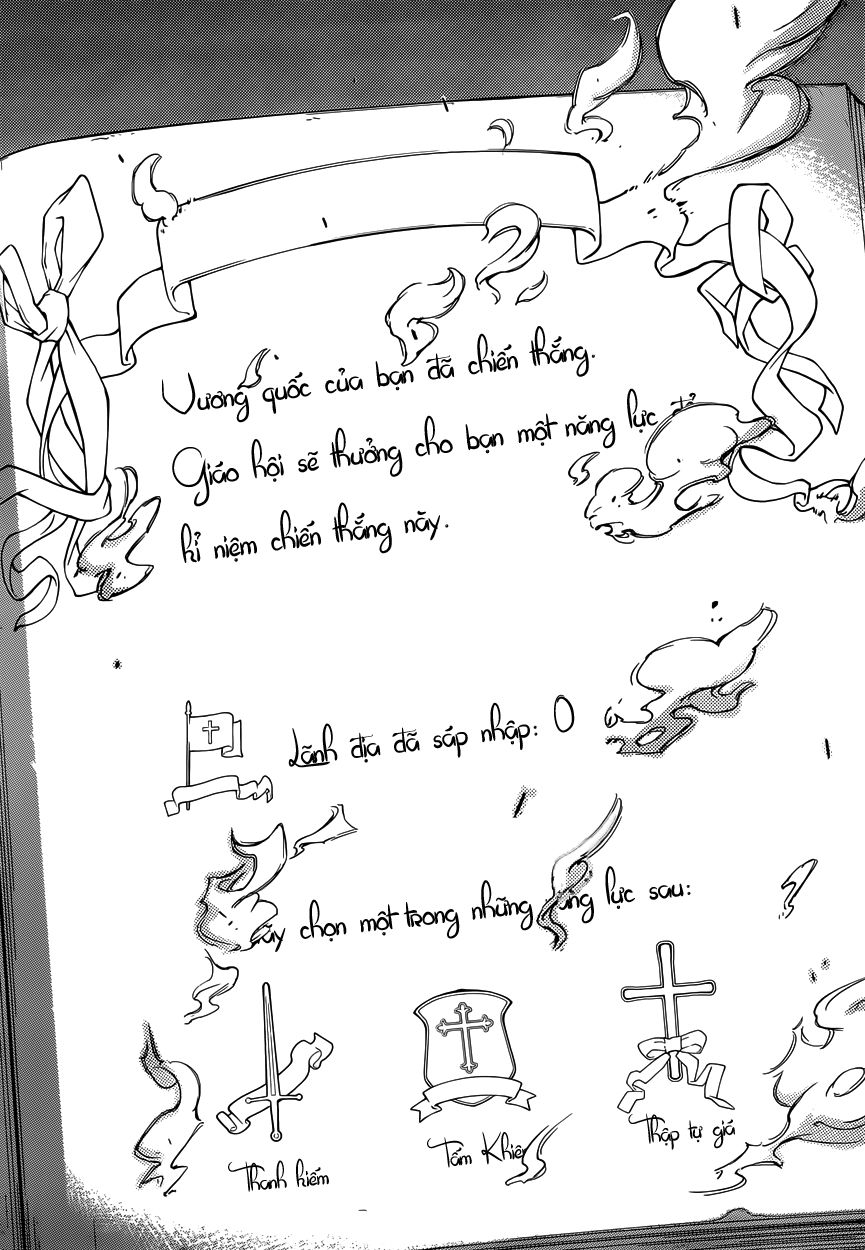 Vương quốc của bạn đã chiến thắng.
Giáo hội sẽ thưởng cho bạn một năng lực để
kỉ niệm chiến thắng này.
Lãnh địa đã sáp nhập: 0
chọn một trong những lực sau:
Thanh kiếm
Tấm Khiên
Thập tự giá